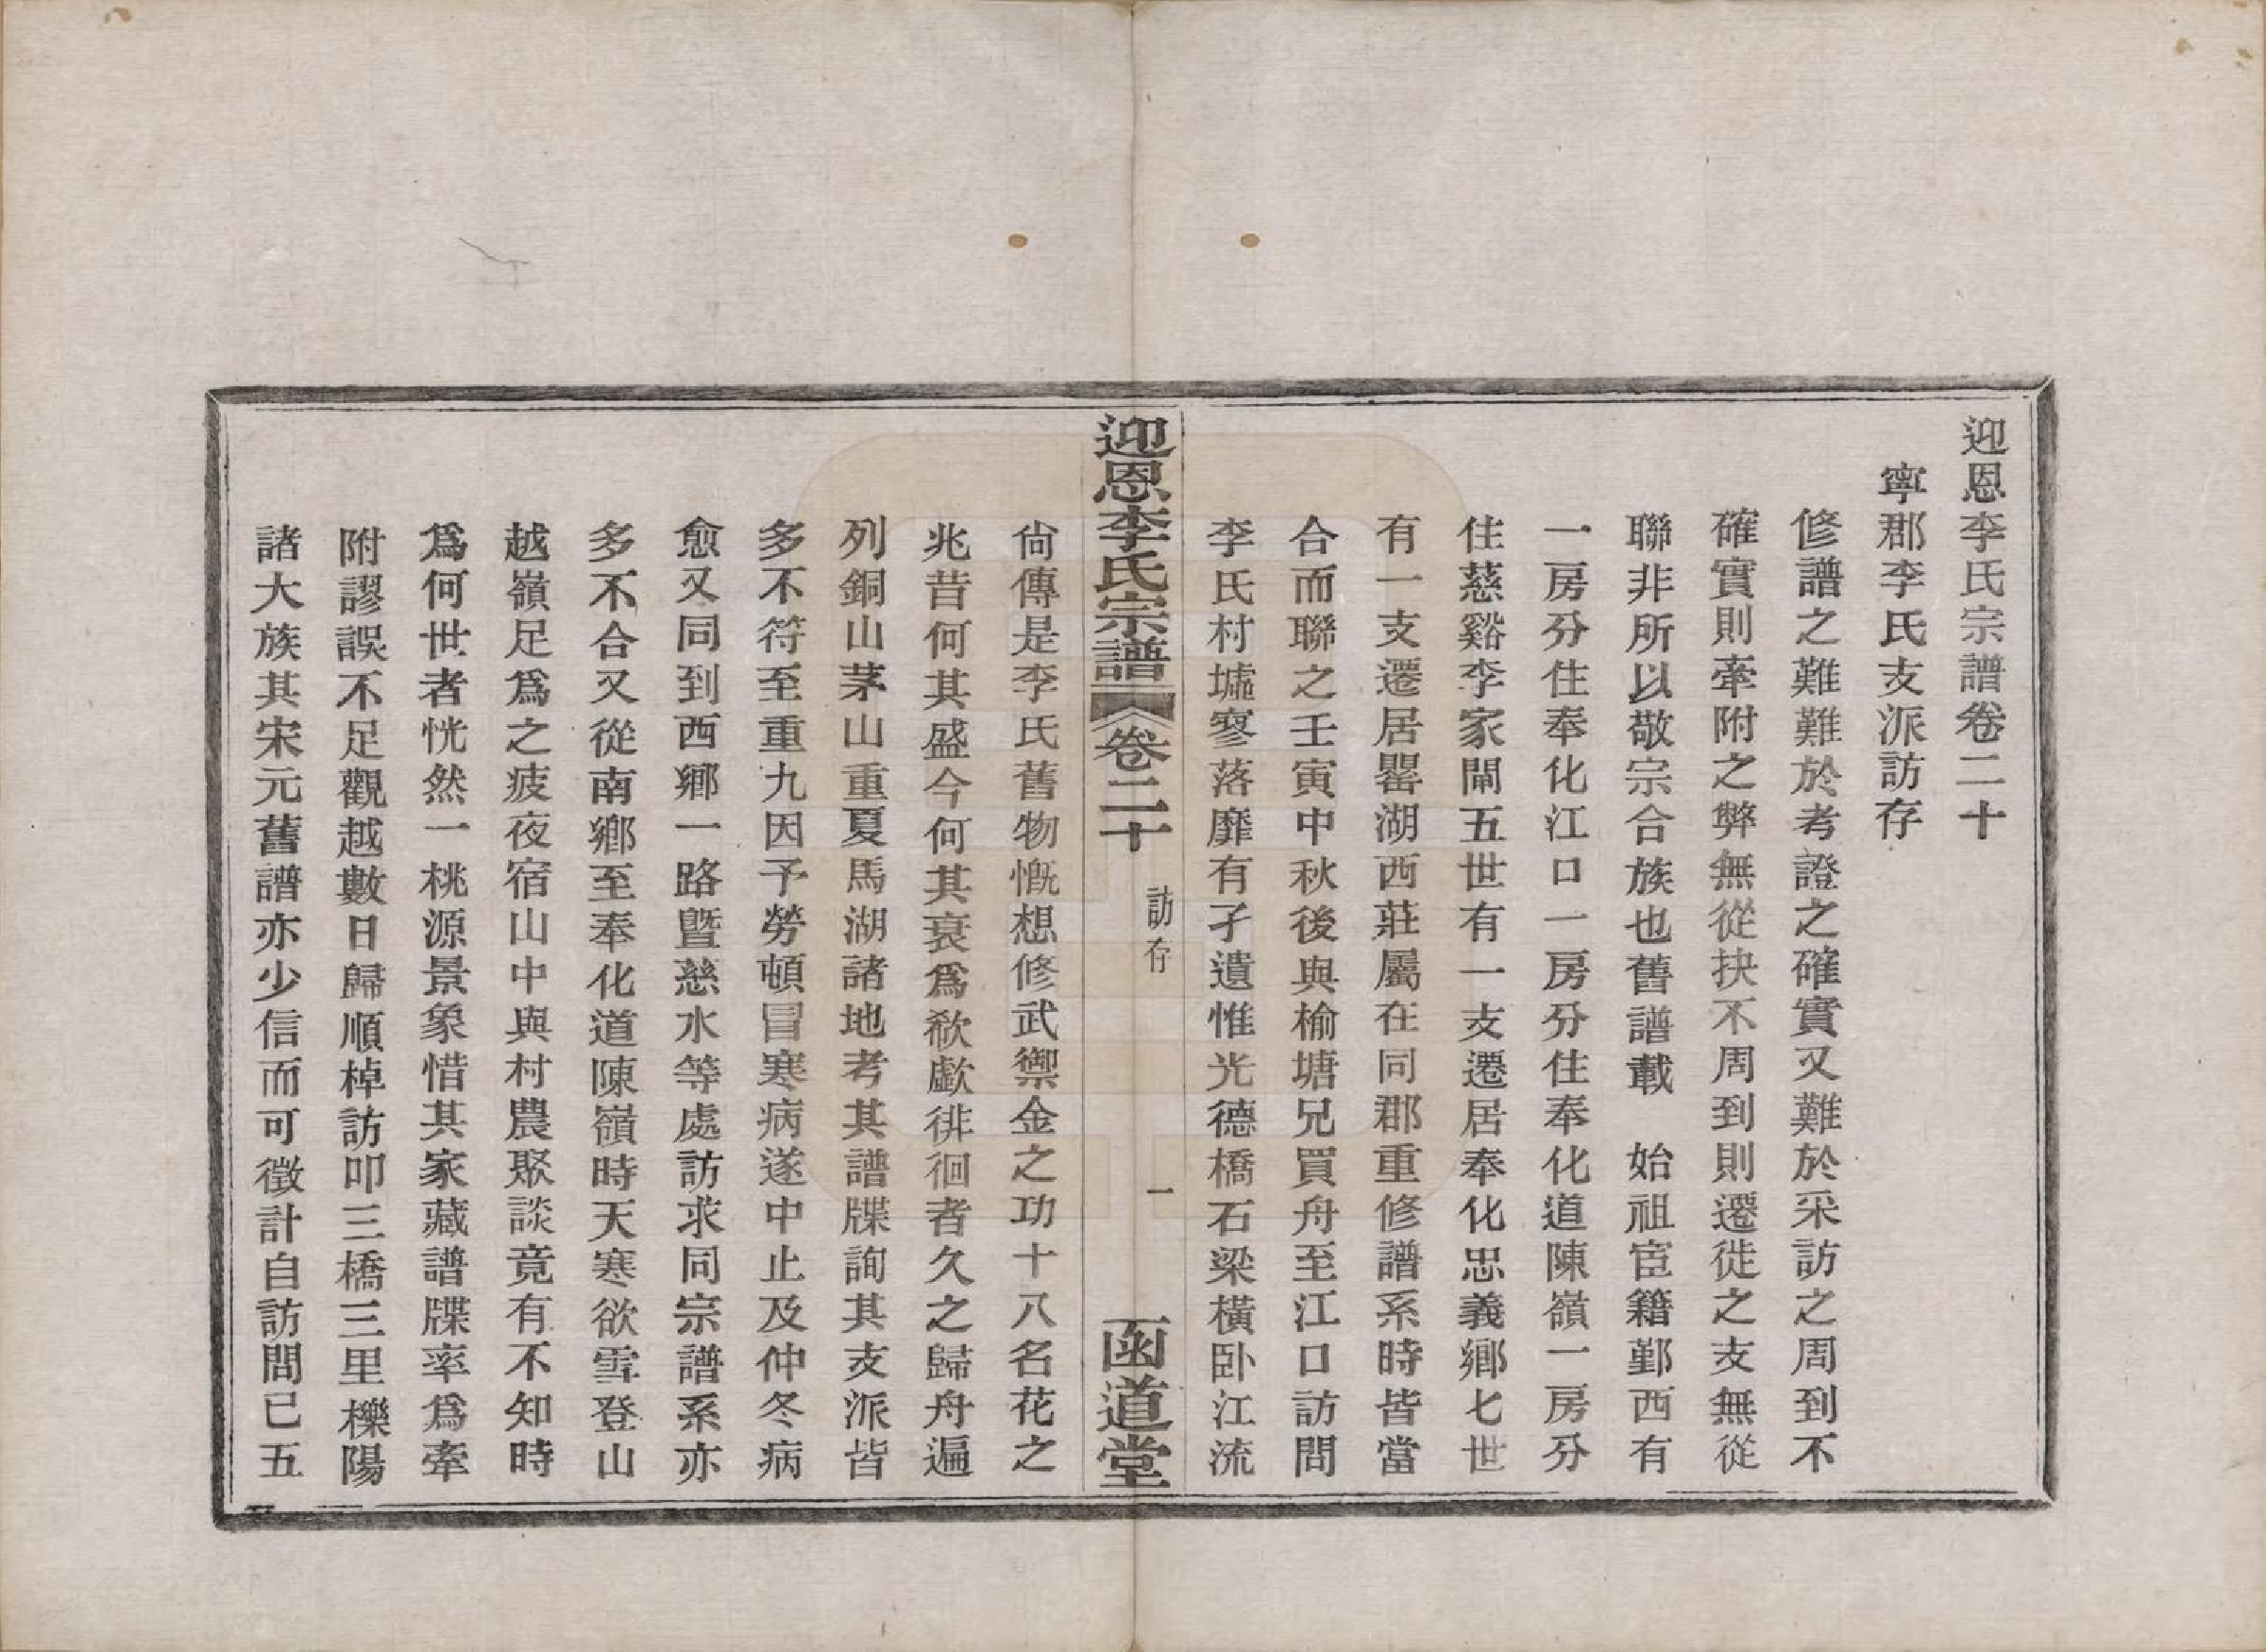 迎恩李氏宗譜卷二十
寧郡李氏支派訪存
修譜之難難於考證之確實又難於采訪之周到不
確實則牽附之弊無從抉不周到則遷徙之支無從
聯非所以敬宗合族也舊譜載　始祖宦籍鄞西有
一房分住奉化江口一房分住奉化道陳嶺一房分
住慈谿李家閘五世有一支遷居奉化忠義鄉七世
有一支遷居罌湖西莊屬在同郡重修譜系時皆當
合而聯之壬寅中秋後與榆塘兄買舟至江口訪問
李氏村墟寥落靡有孑遺惟光德橋石梁橫臥江流
迎恩李氏宗譜 卷二十 訪存 一 函道堂
尚傳是李氏舊物慨想修武禦金之功十八名花之
兆昔何其盛今何其衰爲欷歔徘徊者久之歸舟遍
列銅山茅山重夏馬湖諸地考其譜牒詢其支派皆
多不符至重九因予勞頓冒寒病遂中止及仲冬病
愈又同到西鄉一路暨慈水等處訪求同宗譜系亦
多不合又從南鄉至奉化道陳嶺時天寒欲雪登山
越嶺足爲之疲夜宿山中與村農聚談竟有不知時
爲何世者恍然一桃源景象惜其家藏譜牒率爲牽
附謬誤不足觀越數日歸順棹訪叩三橋三里櫟陽
諸大族其宋元舊譜亦少信而可徵計自訪問已五